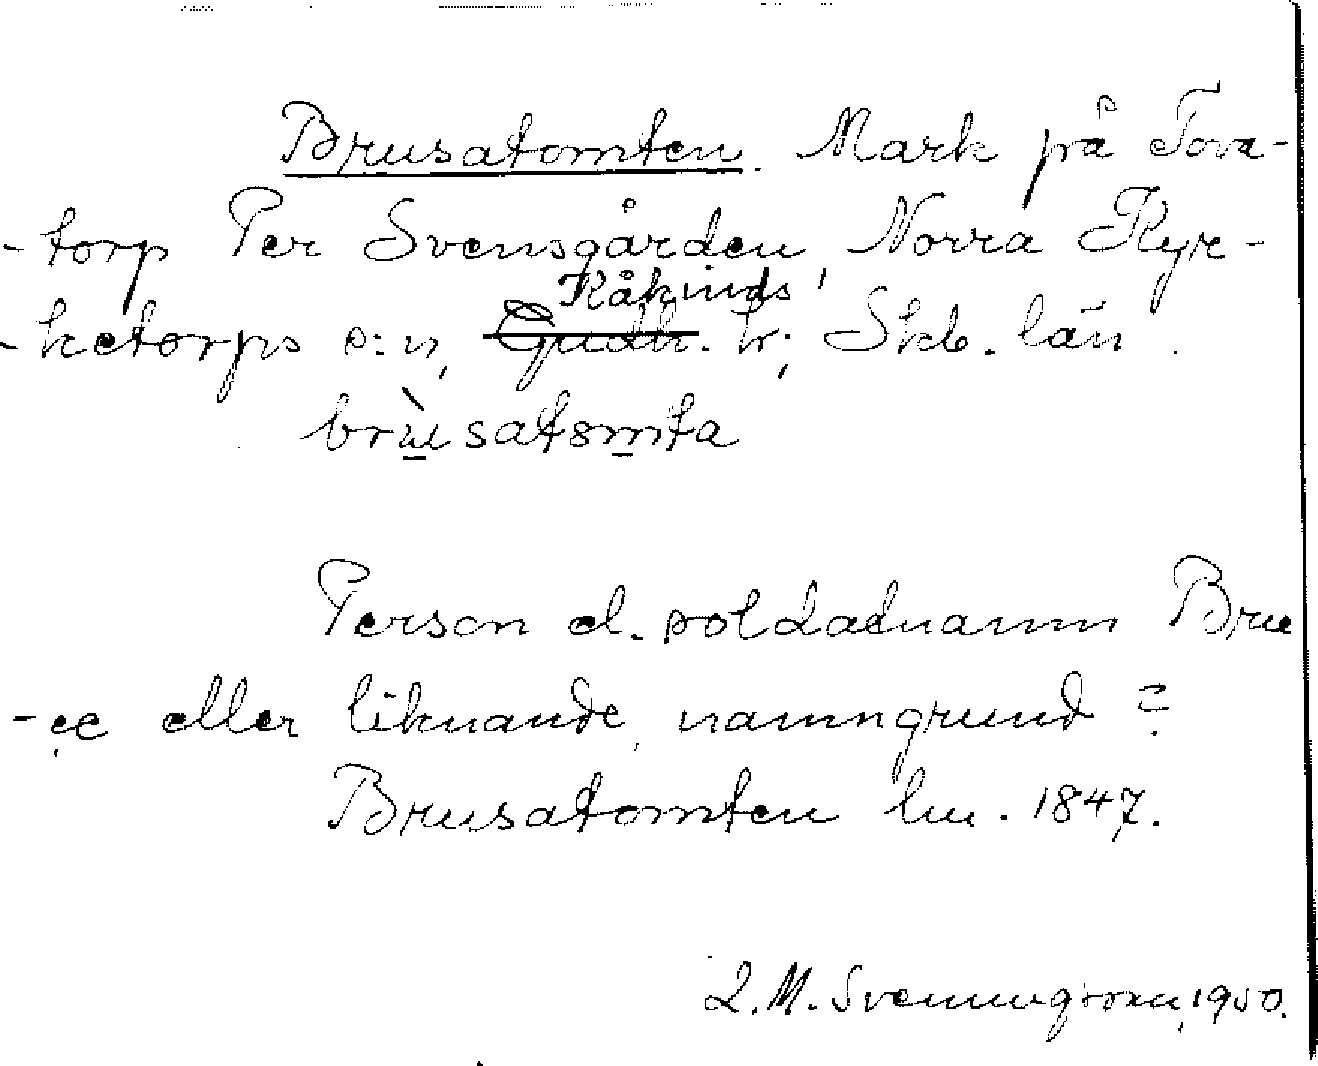 Brusatomten. Mark på Tova-
-torp Per Svensgården, Norra Kyr-
Kåkinds
-ketorps s:n, Gudh. hr; Skb. län.
brùsatomta
Person el. soldatnamn Bru
-se eller liknande, namngrund?
Brusatomten lm. 1847.
L.M. Svenungsson, 1950.